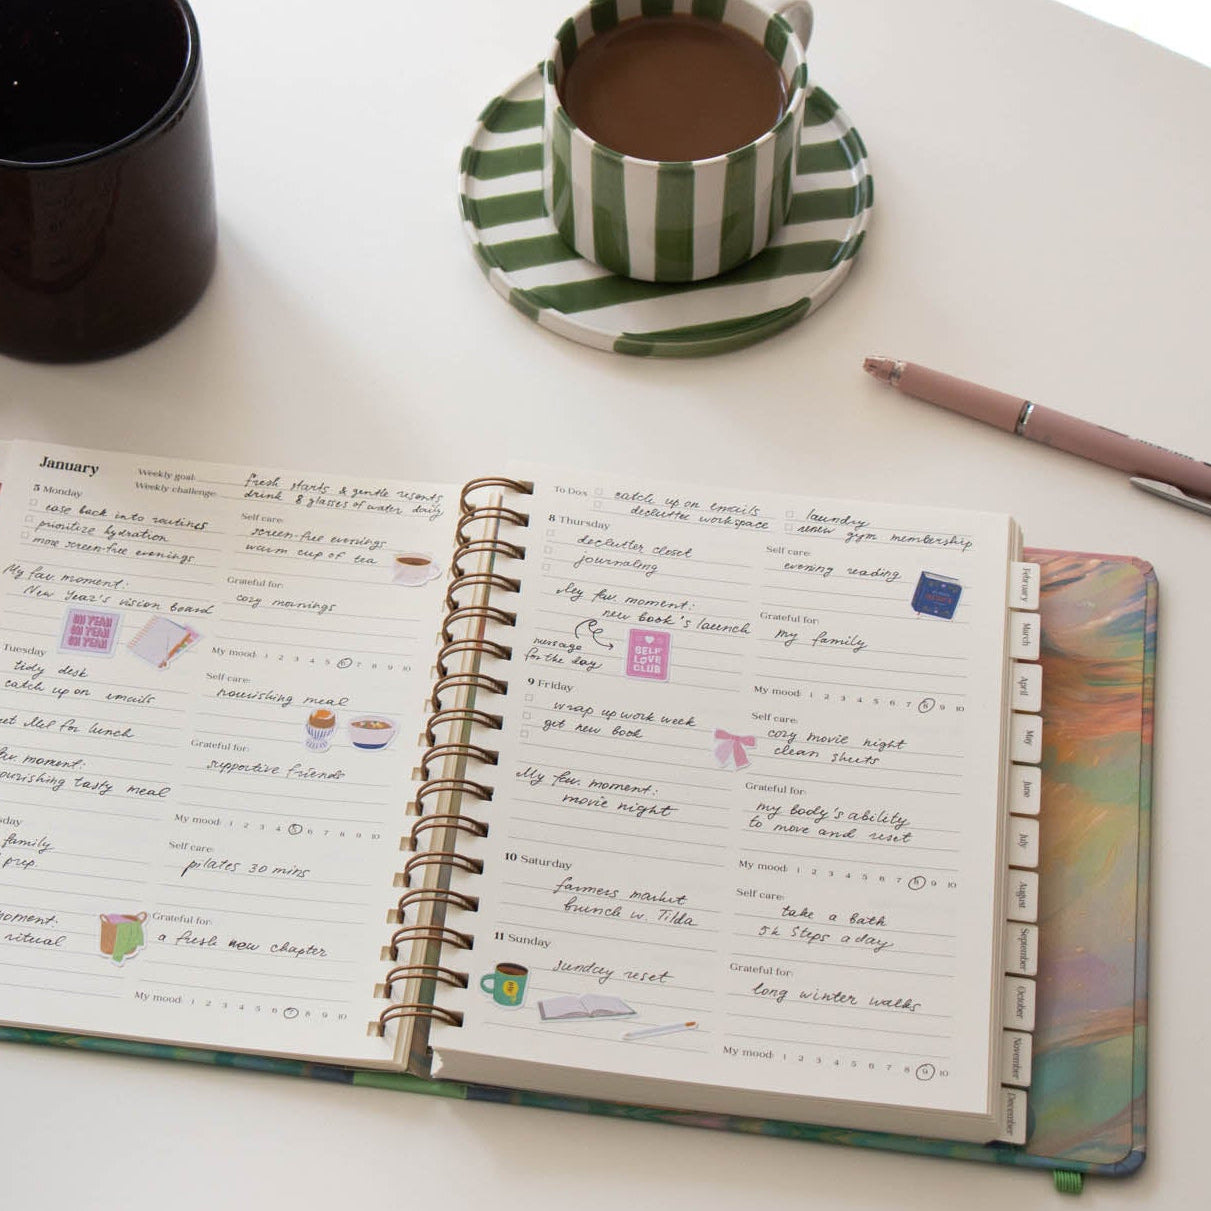 January
Weekly goal: fresh starts & gentle resets
Weekly challenge: drink 8 glasses of water daily
5 Monday
ease back into routines
prioritize hydration
more screen-free evenings
My fav. moment:
New Year's vision board
OH YEAH
OH YEAH
OH YEAH
Self care:
screen-free evenings
warm cup of tea
Grateful for:
cozy mornings
My mood: 1 2 3 4 5 6 7 8 9 10
Tuesday
tidy desk
catch up on emails
for lunch
moment:
nourishing tasty meal
Self care:
nourishing meal
Grateful for:
supportive friends
My mood: 1 2 3 4 5 6 7 8 9 10
family
prep.
moment:
ritual
Self care:
pilates 30 mins
Grateful for:
a fresh new chapter
My mood: 1 2 3 4 5 6 7 8 9 10
To Dos
catch up on emails
declutter workspace
laundry
renew gym membership
8 Thursday
declutter closet
journaling
My fav. moment:
new book's launch
message
for the day
SELF
LOVE
CLUB
Self care:
evening reading
Grateful for:
my family
My mood: 1 2 3 4 5 6 7 8 9 10
9 Friday
wrap up work week
get new book
My fav. moment:
movie night
Self care:
cozy movie night
clean sheets
Grateful for:
my body's ability
to move and reset
My mood: 1 2 3 4 5 6 7 8 9 10
10 Saturday
farmers market
brunch w. Tilda
11 Sunday
Sunday reset
Self care:
take a bath
5k steps a day
Grateful for:
long winter walks
My mood: 1 2 3 4 5 6 7 8 9 10
February
March
April
May
June
July
August
September
October
November
December